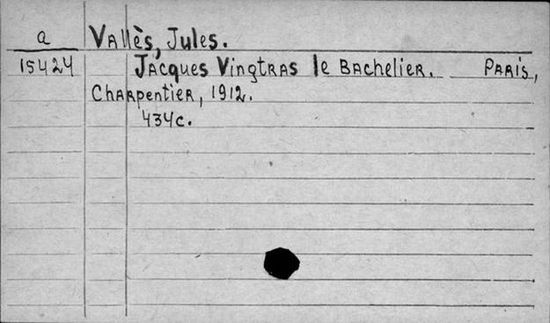 a Vallès, Jules.
15424 Jacques Vingtras le Bachelier. Paris,
Charpentier, 1912.
434c.